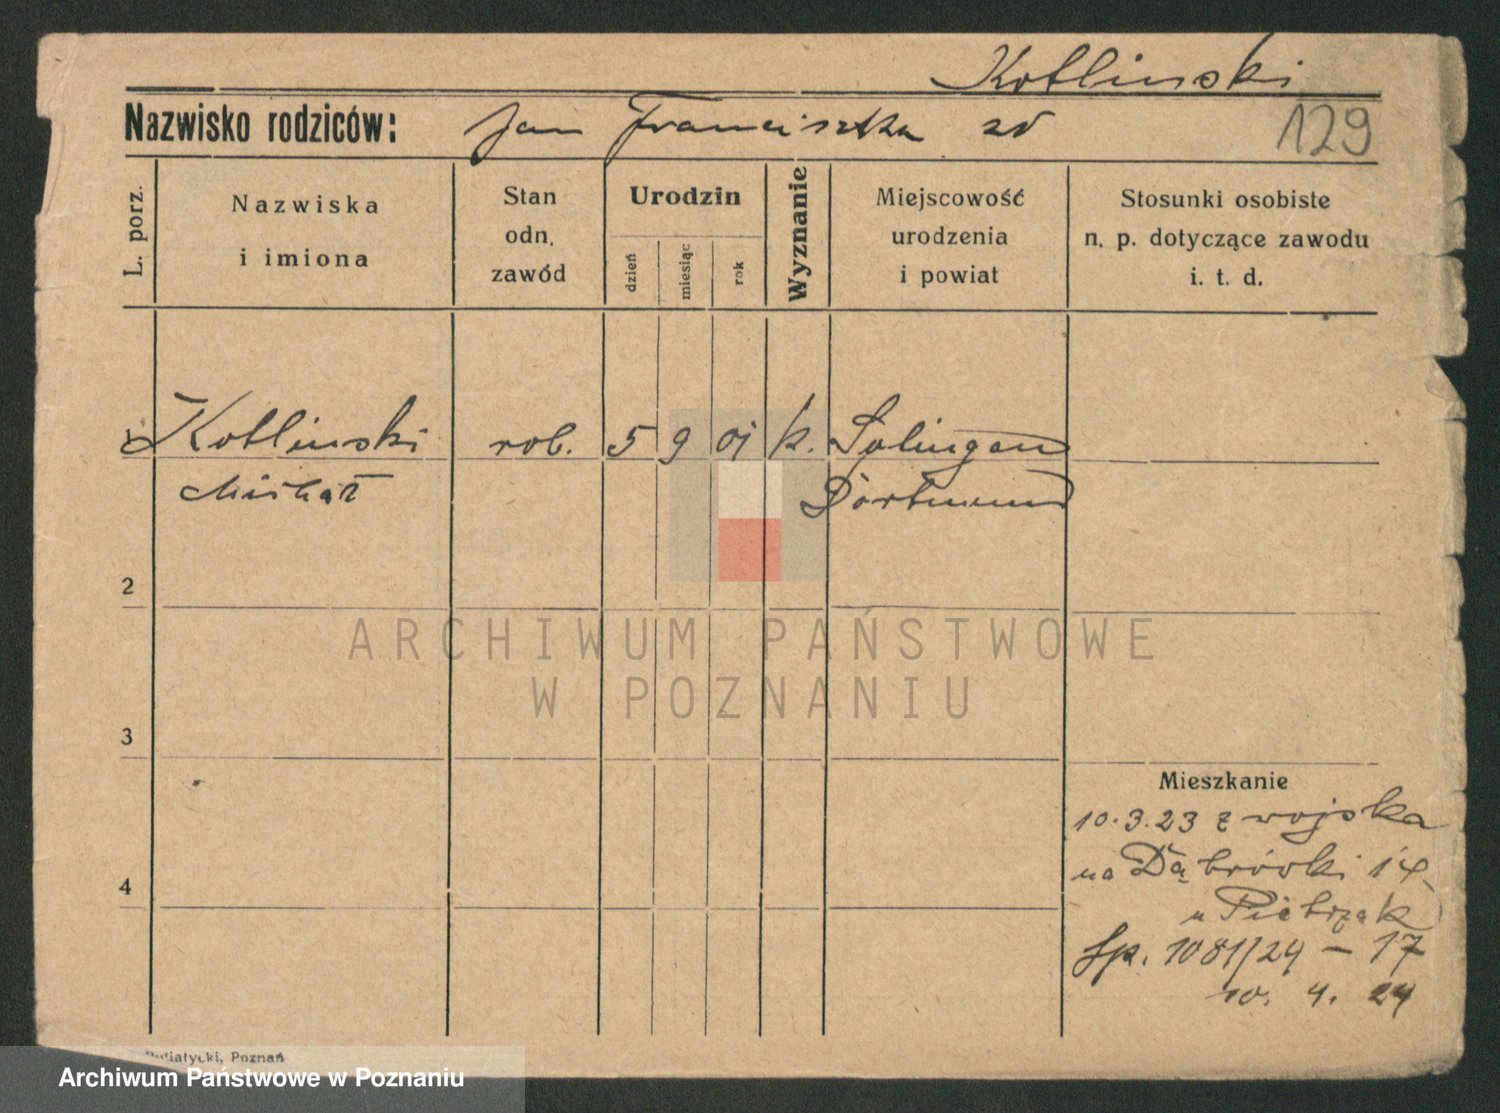 Kotlinski
Nazwisko rodziców: Jan Franciszka
129
L. porz.
Nazwiska
i imiona
Stan
odn.
zawód
Urodzin
dzień
miesiąc
rok
Wyznanie
Miejscowość
urodzenia
i powiat
Stosunki osobiste
n. p. dotyczące zawodu
i. t. d.
Kotlinski rob. 5 9 01 k. Solingen
Michał Dortmund
2
ARCHIWUM PAŃSTWOWE
W POZNANIU
3
Mieszkanie
10.3.23 z wojska
na Dąbrówki
u Pietrzak
4
Sp. 1081/24 – 17
10. 4. 24
Poznań
Archiwum Państwowe w Poznaniu